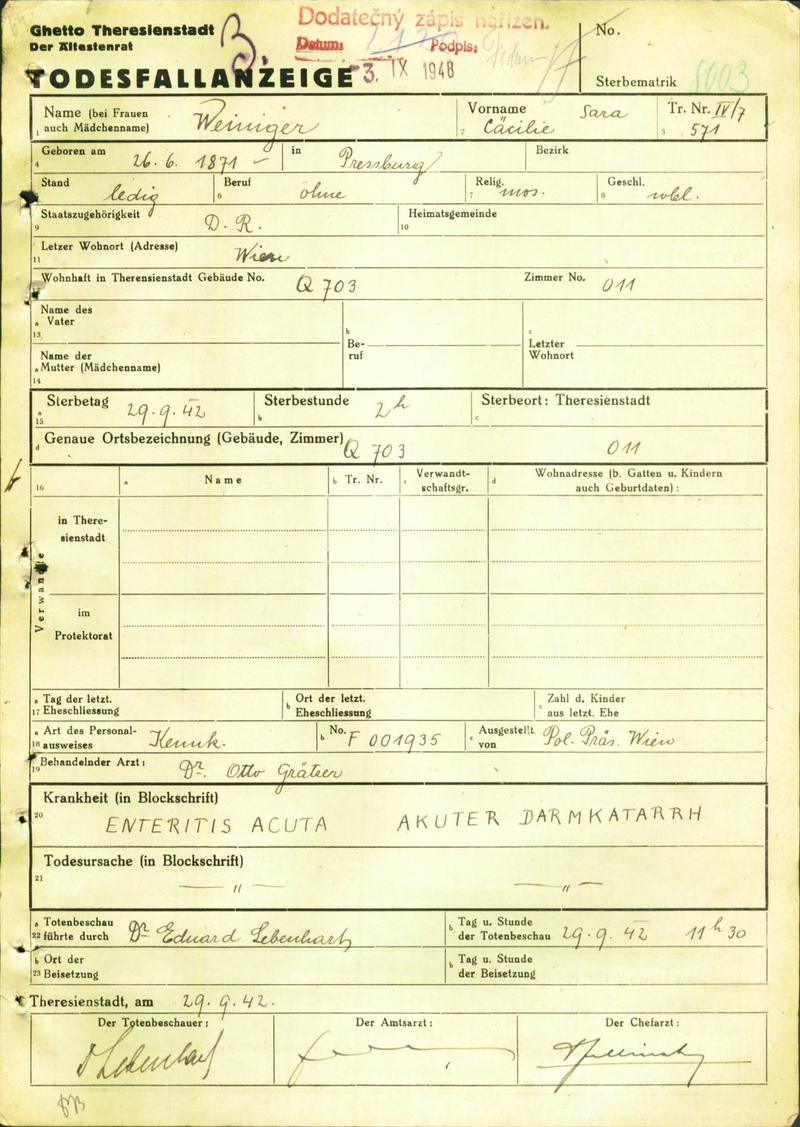 Ghetto Theresienstadt
Der Ältestenrat
Dodatečný zápis nařízen.
Datum: Podpis:
3. IX 1948
TODESFALLANZEIGE
No.
Sterbematrik 5003
Name (bei Frauen auch Mädchenname) Weiniger
1
Vorname Sara
2 Cäcilie
Tr. Nr. IV/7
3 571
Geboren am 26. 6. 1871 in Pressburg Bezirk
4
Stand ledig Beruf ohne Relig. mos. Geschl. wbl.
5 6 7 8
Staatszugehörigkeit D. R. Heimatsgemeinde
9 10
Letzer Wohnort (Adresse) Wien
11
Wohnhaft in Theresienstadt Gebäude No. Q 703 Zimmer No. 011
12
Name des
a Vater
13
b Beruf
c Letzter Wohnort
Name der
a Mutter (Mädchenname)
14
Sterbetag 29. 9. 42 Sterbestunde 2h Sterbeort: Theresienstadt
a b c
15
d Genaue Ortsbezeichnung (Gebäude, Zimmer) Q 703 011
16 a Name b Tr. Nr. c Verwandt-schaftsgr. d Wohnadresse (b. Gatten u. Kindern auch Geburtdaten) :
Verwandte
in There-
sienstadt
im
Protektorat
a Tag der letzt. b Ort der letzt. c Zahl d. Kinder
17 Eheschliessung Eheschliessung aus letzt. Ehe
a Art des Personal- Kennk. b No. F 001935 c Ausgestellt Pol. Präs. Wien
18 ausweises von
Behandelnder Arzt: Dr. Otto Grätzer
19
Krankheit (in Blockschrift)
20 ENTERITIS ACUTA AKUTER DARMKATARRH
Todesursache (in Blockschrift)
21 — " — — " —
a Totenbeschau Dr. Eduard Lebenhart b Tag u. Stunde 29. 9. 42 11h 30
22 führte durch der Totenbeschau
b Ort der b Tag u. Stunde
23 Beisetzung der Beisetzung
Theresienstadt, am 29. 9. 42.
Der Totenbeschauer: Der Amtsarzt: Der Chefarzt: